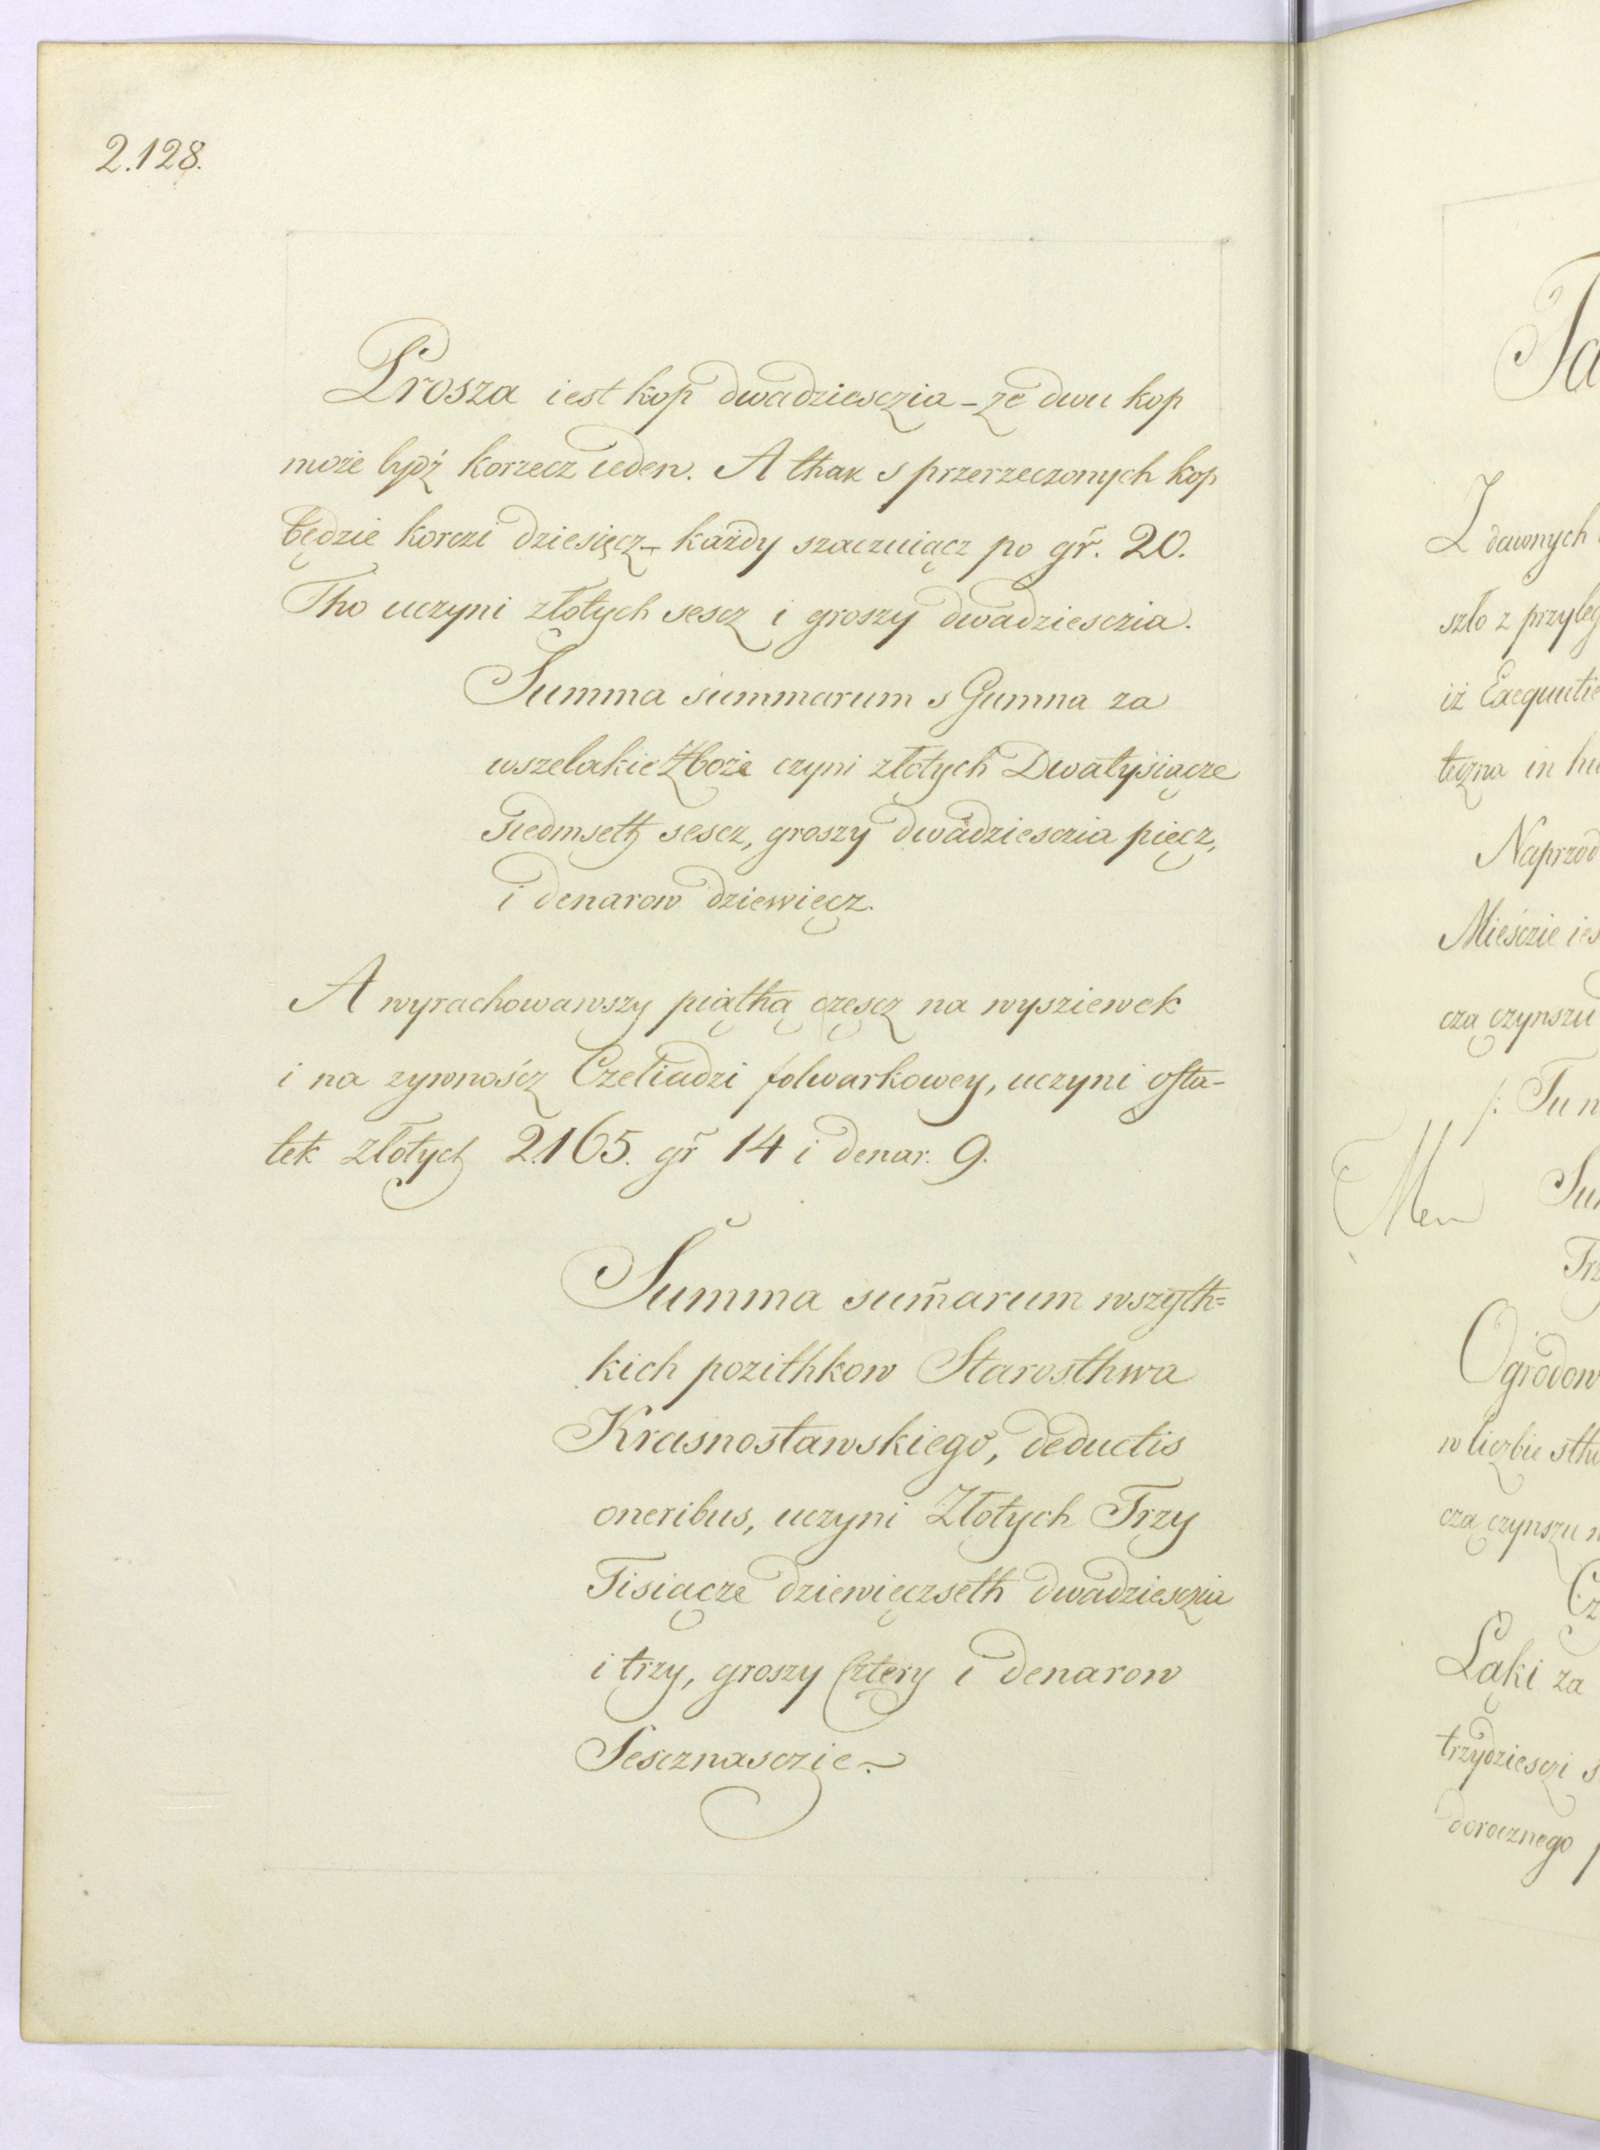 2.128.
Prosza iest kop dwadziesczia - ze dwu kop
może bydź korzecz ieden. A thak s przerzeczonych kop
będzie korczi dziesięcz - każdy szaczuiącz po gr̃. 20.
Tho uczyni złotych sescz i groszy dwadziesczia.
Summa summarum s Gumna za
wszelakie Zboże czyni złotych Dwatysiącze
Siedmseth sescz, groszy dwadziesczia pięcz,
i denarow dziewięcz.
A wyrachowawszy piąthą częscz na wysziewek
i na zywnoścz Czeliadzi folwarkowey, uczyni osta-
tek złotych 2165. gr̃ 14 i denar. 9.
Summa sum̃arum wszyth=
kich pozithkow Starosthwa
Krasnostawskiego, deductis
oneribus, uczyni Złotych Trzy
Tisiącze dziewięczseth dwadziesczia
i trzy, groszy Cztery i denarow
Sescznasczie.
Ta
Z dawnych
szło z przyleg
iż Exequutie
teczna in hu
Naprzod
Mieśczie ies
cza czynszu
/: Tu n
Mem
Sum
Trz
Ogrodow
w liczbie sthu
czą czynszu n
Cz
Łąki za
trzydziesczi s
dorocznego p